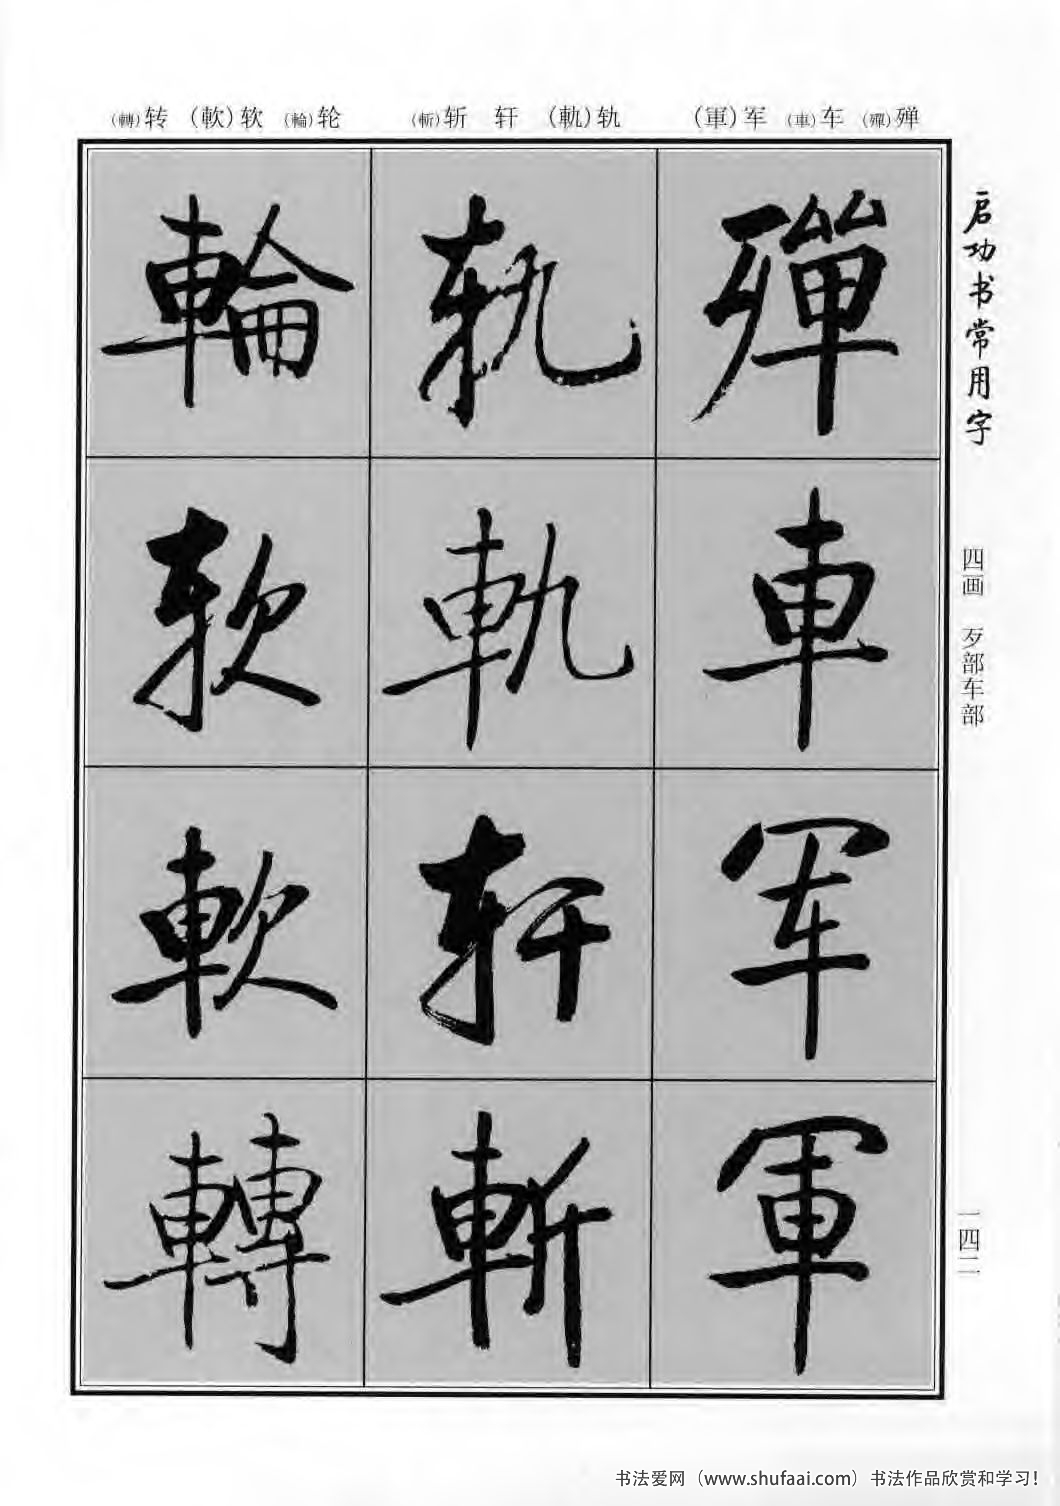 (轉)转 (軟)软 (輪)轮 (斬)斩 轩 (軌)轨 (軍)军 (車)车 (殫)殚
启功书常用字
四画 歹部车部
一四二
殫
車
军
軍
轨
軌
轩
斬
輪
软
軟
轉
书法爱网（www.shufaai.com）书法作品欣赏和学习！